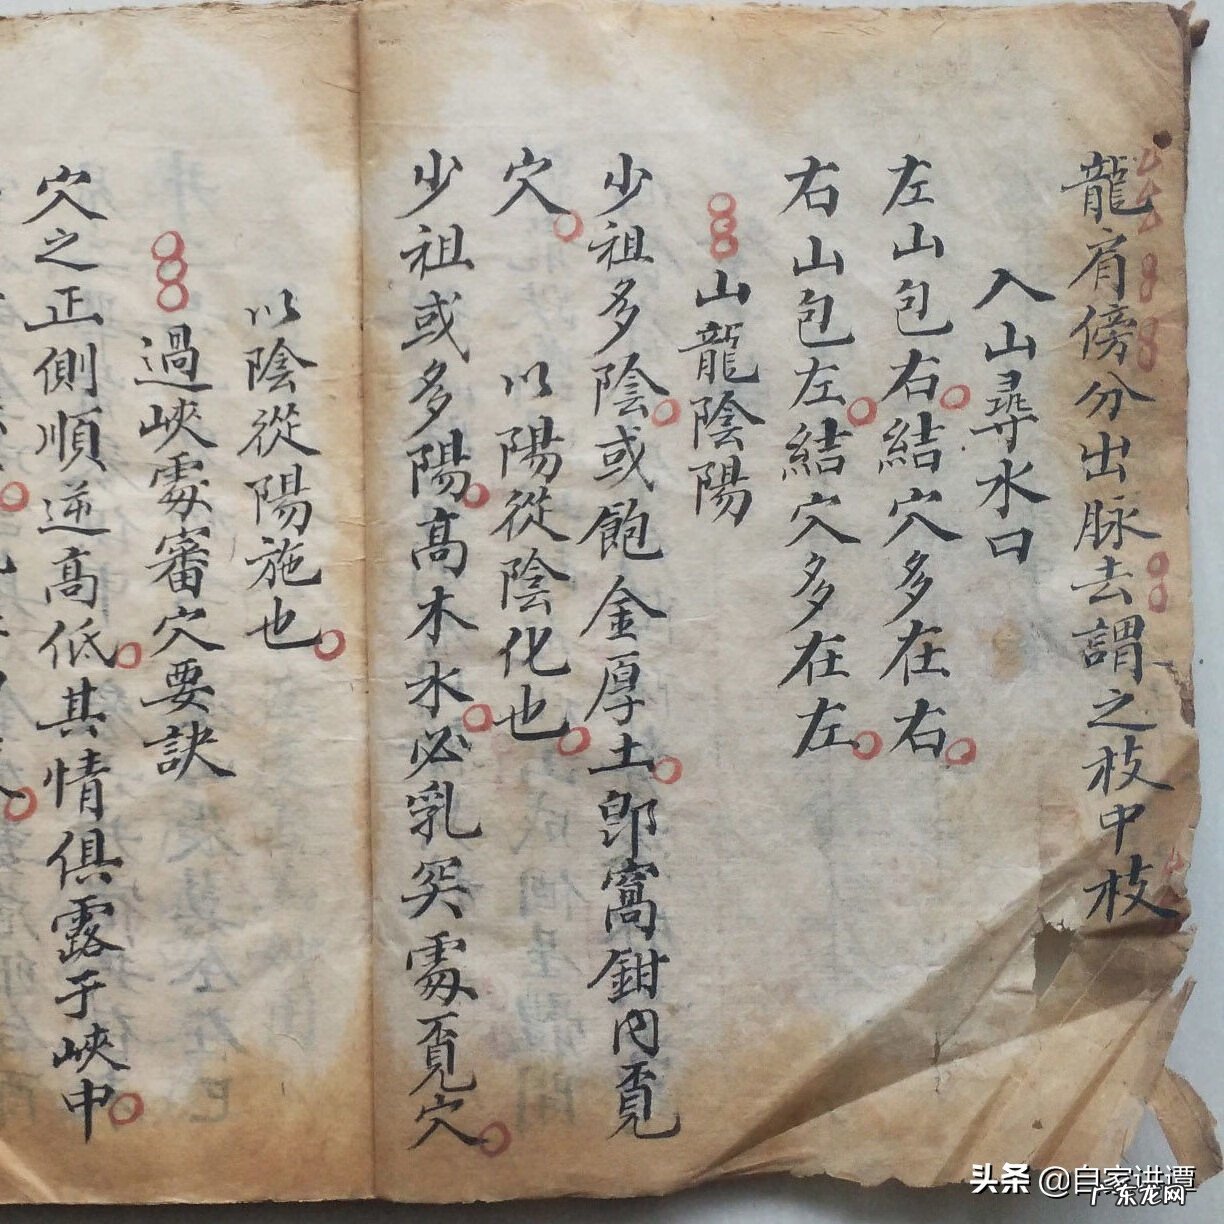 龍肩傍分出脉去謂之枝中枝
入山尋水口
左山包右結穴多在右
右山包左結穴多在左
山龍陰陽
少祖多陰或飽金厚土即窩鉗內覔
穴 以陽從陰化也
少祖或多陽高木水必乳突處覔穴
以陰從陽施也
過峽處審穴要訣
穴之正側順逆高低其情俱露于峽中
头条 @自家讲谭
广东龙网